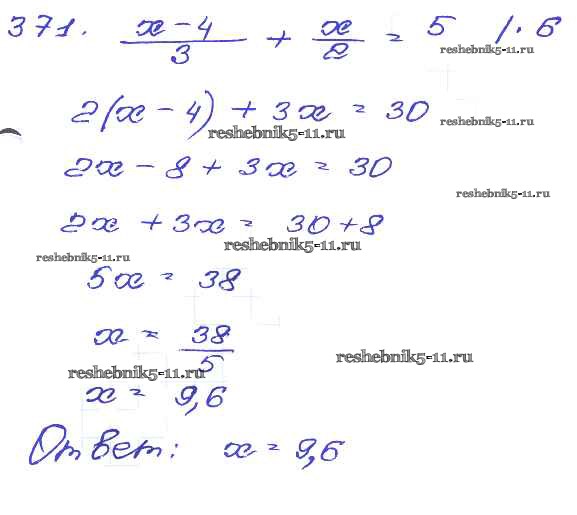 371. x-4/3 + x/2 = 5 /·6
reshebnik5-11.ru
2(x-4) + 3x = 30
reshebnik5-11.ru reshebnik5-11.ru
2x - 8 + 3x = 30
reshebnik5-11.ru
2x + 3x = 30+8
reshebnik5-11.ru
reshebnik5-11.ru
5x = 38
x = 38/5
reshebnik5-11.ru
reshebnik5-11.ru
x = 9,6
Ответ: x = 9,6